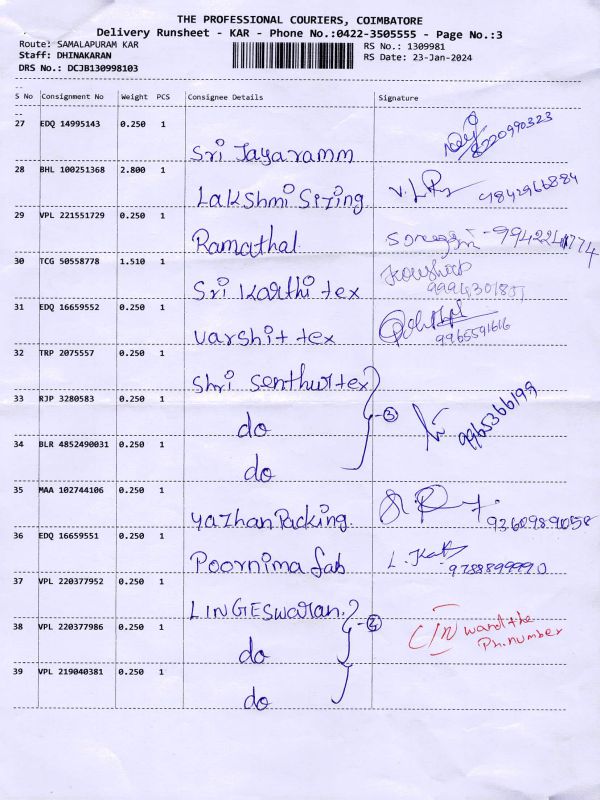 THE PROFESSIONAL COURIERS, COIMBATORE
Delivery Runsheet - KAR - Phone No.:0422-3505555 - Page No.:3
Route: SAMALAPURAM KAR RS No.: 1309981
Staff: DHINAKARAN RS Date: 23-Jan-2024
DRS No.: DCJB130998103
S No Consignment No Weight PCS Consignee Details Signature
27 EDQ 14995143 0.250 1
Sri Jayaramm 8220990323
28 BHL 100251368 2.800 1
Lakshmi Sizing 9842966884
29 VPL 221551729 0.250 1
Ramathal
30 TCG 50558778 1.510 1
Sri Karthi tex
31 EDQ 16659552 0.250 1
varshit tex 9965591616
32 TRP 2075557 0.250 1
Shri Senthur tex
33 RJP 3280583 0.250 1
do 3 9965366199
34 BLR 4852490031 0.250 1
do
35 MAA 102744106 0.250 1
yazhan Packing. 9360989058
36 EDQ 16659551 0.250 1
Poornima fab 9788899990
37 VPL 220377952 0.250 1
LINGESwaran.
38 VPL 220377986 0.250 1
do want the
Ph.number
39 VPL 219040381 0.250 1
do